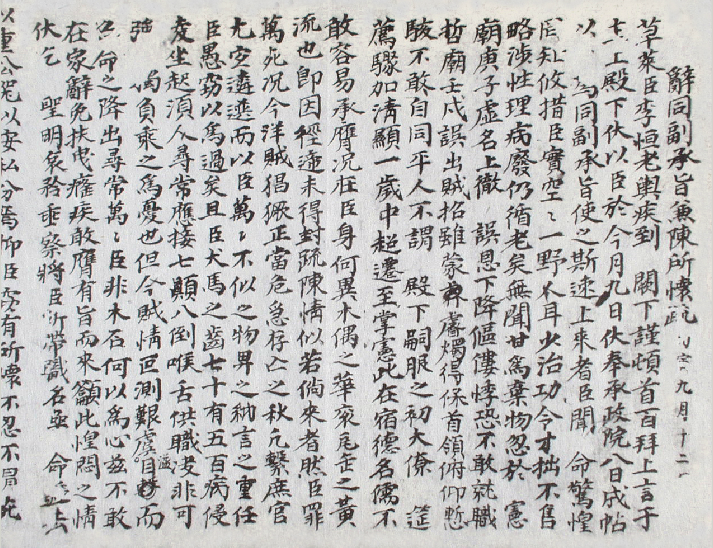 辭同副承旨兼陳所懷疏 九月十二
草萊臣李恒老輿疾到 闕下謹頓首百拜上言于
主上殿下伏以臣於今月九日伏奉承政院八日成帖
以 爲同副承旨使之斯速上來者臣聞 命驚惶
罔知攸措臣實空空一野人耳少治功令才拙不售
略涉性理病廢仍循老矣無聞甘爲棄物忽於 憲
廟庚子虛名上徹 誤恩下降傴僂悸恐不敢就職
哲廟壬戌誤出賊招雖蒙 睿燭得保首領俯仰慙
駭不敢自同平人不謂 殿下嗣服之初大僚 筵
薦驟加淸顯一歲中超遷至掌憲此在宿德名儒不
敢容易承膺況在臣身何異木偶之華袞瓦缶之黃
流也卽因經邅未得封疏陳情似若倘來者然臣罪
萬死況今洋賊猖獗正當危急存亡之秋凡繫庶官
尤宜遴選而以臣萬萬不似之物畀之納言之重任
臣愚竊以爲過矣且臣犬馬之齒七十有五百病侵
凌坐起須人尋常應接七顚八倒喉舌供職決非可
强 負乘之爲憂也但今賊情叵測艱虞溢目而
召命之降出尋常萬萬臣非木石何以爲心玆不敢
在家辭免扶曳癃疾敢膺有旨而來籲此惶悶之情
伏乞 聖明哀矜垂察將臣所帶職名亟 命 
以重公器以安私分焉抑臣竊有所懷不忍不冒死